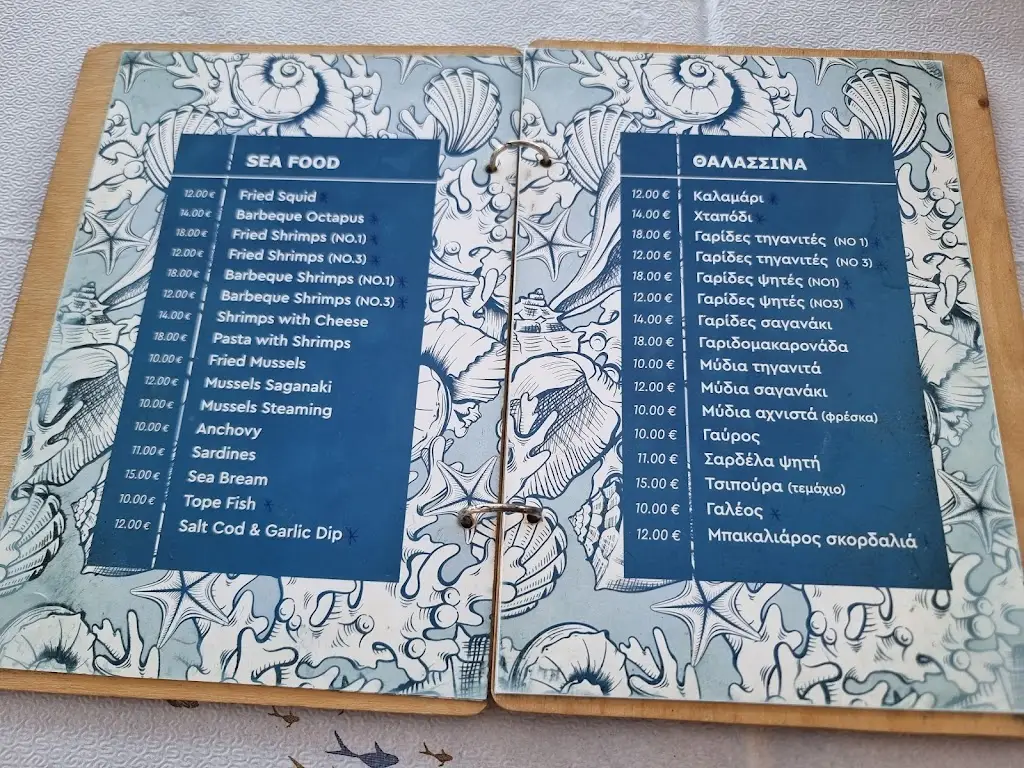 SEA FOOD
12.00 € Fried Squid *
14.00 € Barbeque Octapus *
18.00 € Fried Shrimps (NO.1) *
12.00 € Fried Shrimps (NO.3) *
18.00 € Barbeque Shrimps (NO.1) *
12.00 € Barbeque Shrimps (NO.3) *
14.00 € Shrimps with Cheese
18.00 € Pasta with Shrimps
10.00 € Fried Mussels
12.00 € Mussels Saganaki
10.00 € Mussels Steaming
10.00 € Anchovy
11.00 € Sardines
15.00 € Sea Bream
10.00 € Tope Fish *
12.00 € Salt Cod & Garlic Dip *
ΘΑΛΑΣΣΙΝΑ
12.00 € Καλαμάρι *
14.00 € Χταπόδι *
18.00 € Γαρίδες τηγανιτές (NO 1) *
12.00 € Γαρίδες τηγανιτές (NO 3) *
18.00 € Γαρίδες ψητές (NO1) *
12.00 € Γαρίδες ψητές (NO3) *
14.00 € Γαρίδες σαγανάκι
18.00 € Γαριδομακαρονάδα
10.00 € Μύδια τηγανιτά
12.00 € Μύδια σαγανάκι
10.00 € Μύδια αχνιστά (φρέσκα)
10.00 € Γαύρος
11.00 € Σαρδέλα ψητή
15.00 € Τσιπούρα (τεμάχιο)
10.00 € Γαλέος *
12.00 € Μπακαλιάρος σκορδαλιά *